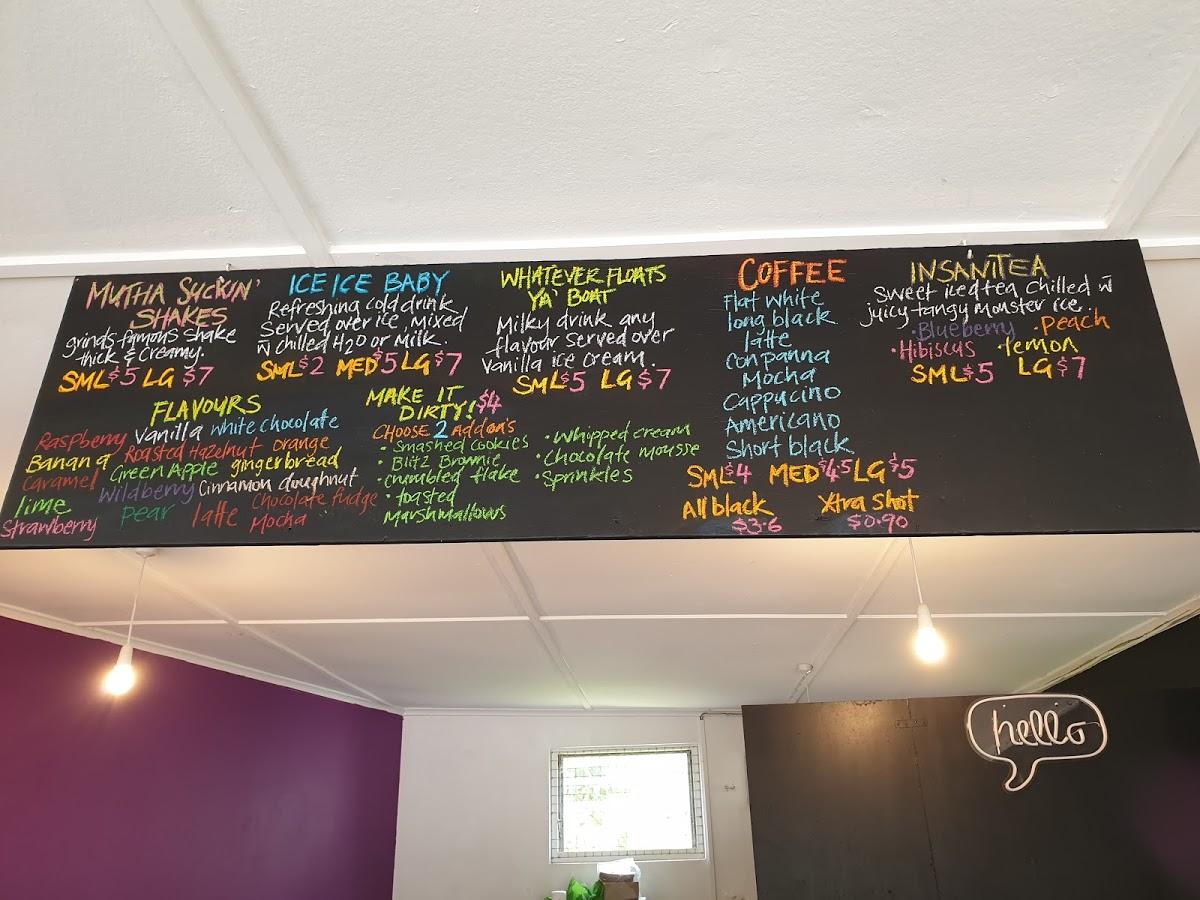 MUTHA SUCKIN'
SHAKES
grinds famous shake
thick & creamy.
SML $5 LG $7
ICE ICE BABY
Refreshing cold drink
Served over ice. Mixed
w̄ chilled H2O or Milk.
SML $2 MED $5 LG $7
WHATEVER FLOATS
YA' BOAT
Milky drink any
flavour Served over
Vanilla ice cream.
SML $5 LG $7
FLAVOURS
Raspberry Vanilla white chocolate
Banana Roasted Hazelnut orange
Caramel Green Apple gingerbread
Wildberry Cinnamon doughnut
lime Chocolate fudge
Strawberry pear latte Mocha
MAKE IT
DIRTY! $4
CHOOSE 2 Addon's
• Smashed cookies
• Blitz Brownie
• crumbled flake
• toasted
Marshmallows
• Whipped cream
• Chocolate mousse
• Sprinkles
COFFEE
Flat white
long black
latte
Con panna
Mocha
Cappucino
Americano
Short black
SML $4 MED $4.5 LG $5
All black Xtra Shot
$3.6 $0.90
INSANITEA
Sweet iced tea Chilled w̄
juicy tangy Monster ice.
• Blueberry • Peach
• Hibiscus lemon
SML $5 LG $7
hello